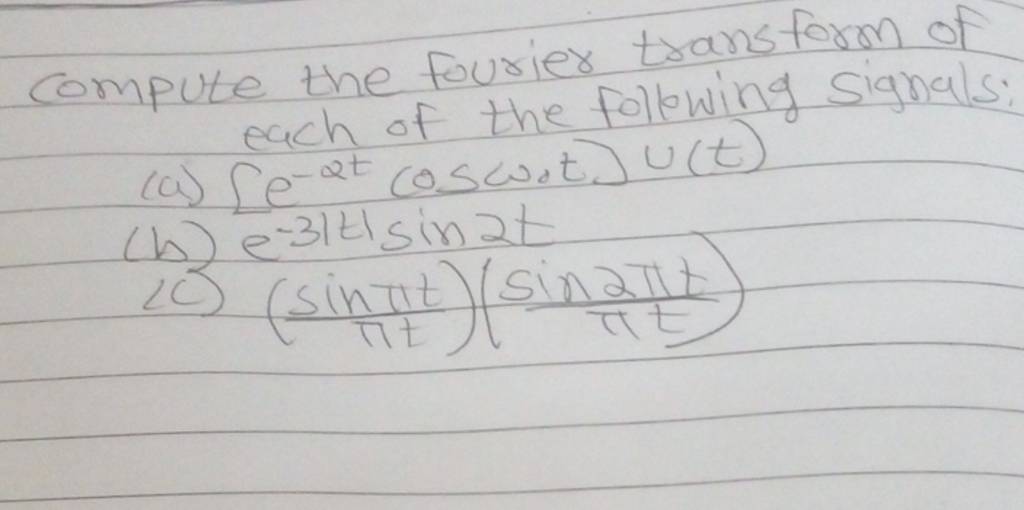 compute the fourier transform of
each of the following signals:
(a) [e^-αt cosω₀t] u(t)
(b) e^-3|t| sin2t
(c) (sinπt/πt)(sin2πt/πt)